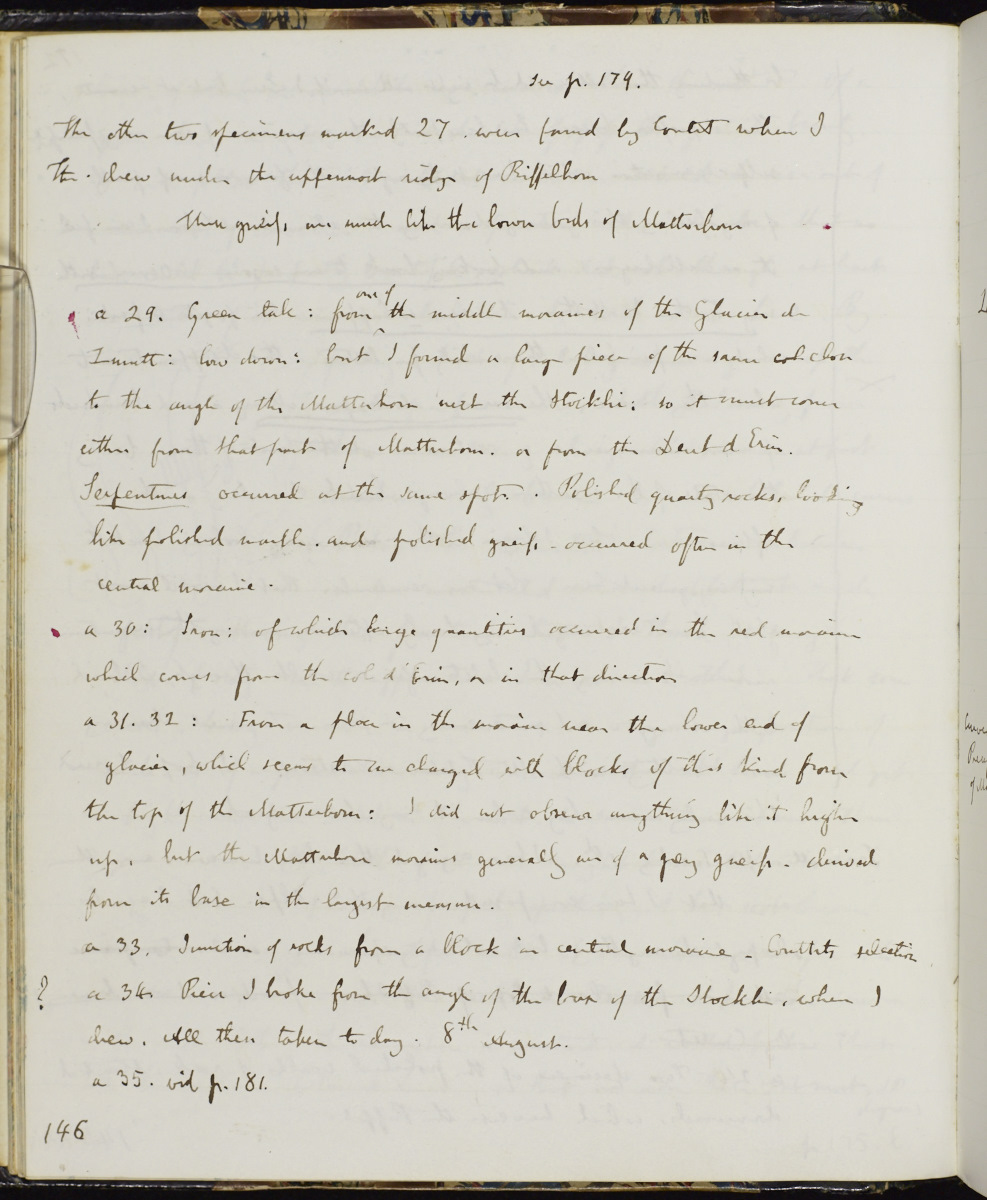 See p. 179.
The other two specimens marked 27. were found by Coutet where I
The. drew under the uppermost ridge of Riffelhorn
These gneiss, are much like the lower beds of Matterhorn
a 29. Green talc: from one of the middle moraines of the Glacier de
Z-mutt: low down: but I found a large piece of the same close
to the angle of the Matterhorn next the Stockhi: so it must come
either from that part of Matterhorn. or from the Dent d Erin.
Serpentines occurred at the same spot. Polished quartz rocks, looking
like polished marble. and polished gneiss - occurred often in the
central moraine.
a 30: Iron: of which large quantities occurred in the red moraine
which comes from the col d'Erin, or in that direction
a 31. 32: From a place in the moraine near the lower end of
glacier, which seems to me charged with blocks of this kind from
the top of the Matterhorn: I did not observe anything like it higher
up, but the Matterhorn moraines generally are of a grey gneiss - derived
from its base in the largest measure.
a 33. Junction of rocks from a block in central moraine - Couttets selection
? a 34. Piece I broke from the angle of the base of the Stockhi, where I
drew. All these taken to day. 8th August.
a 35. vid p. 181.
146